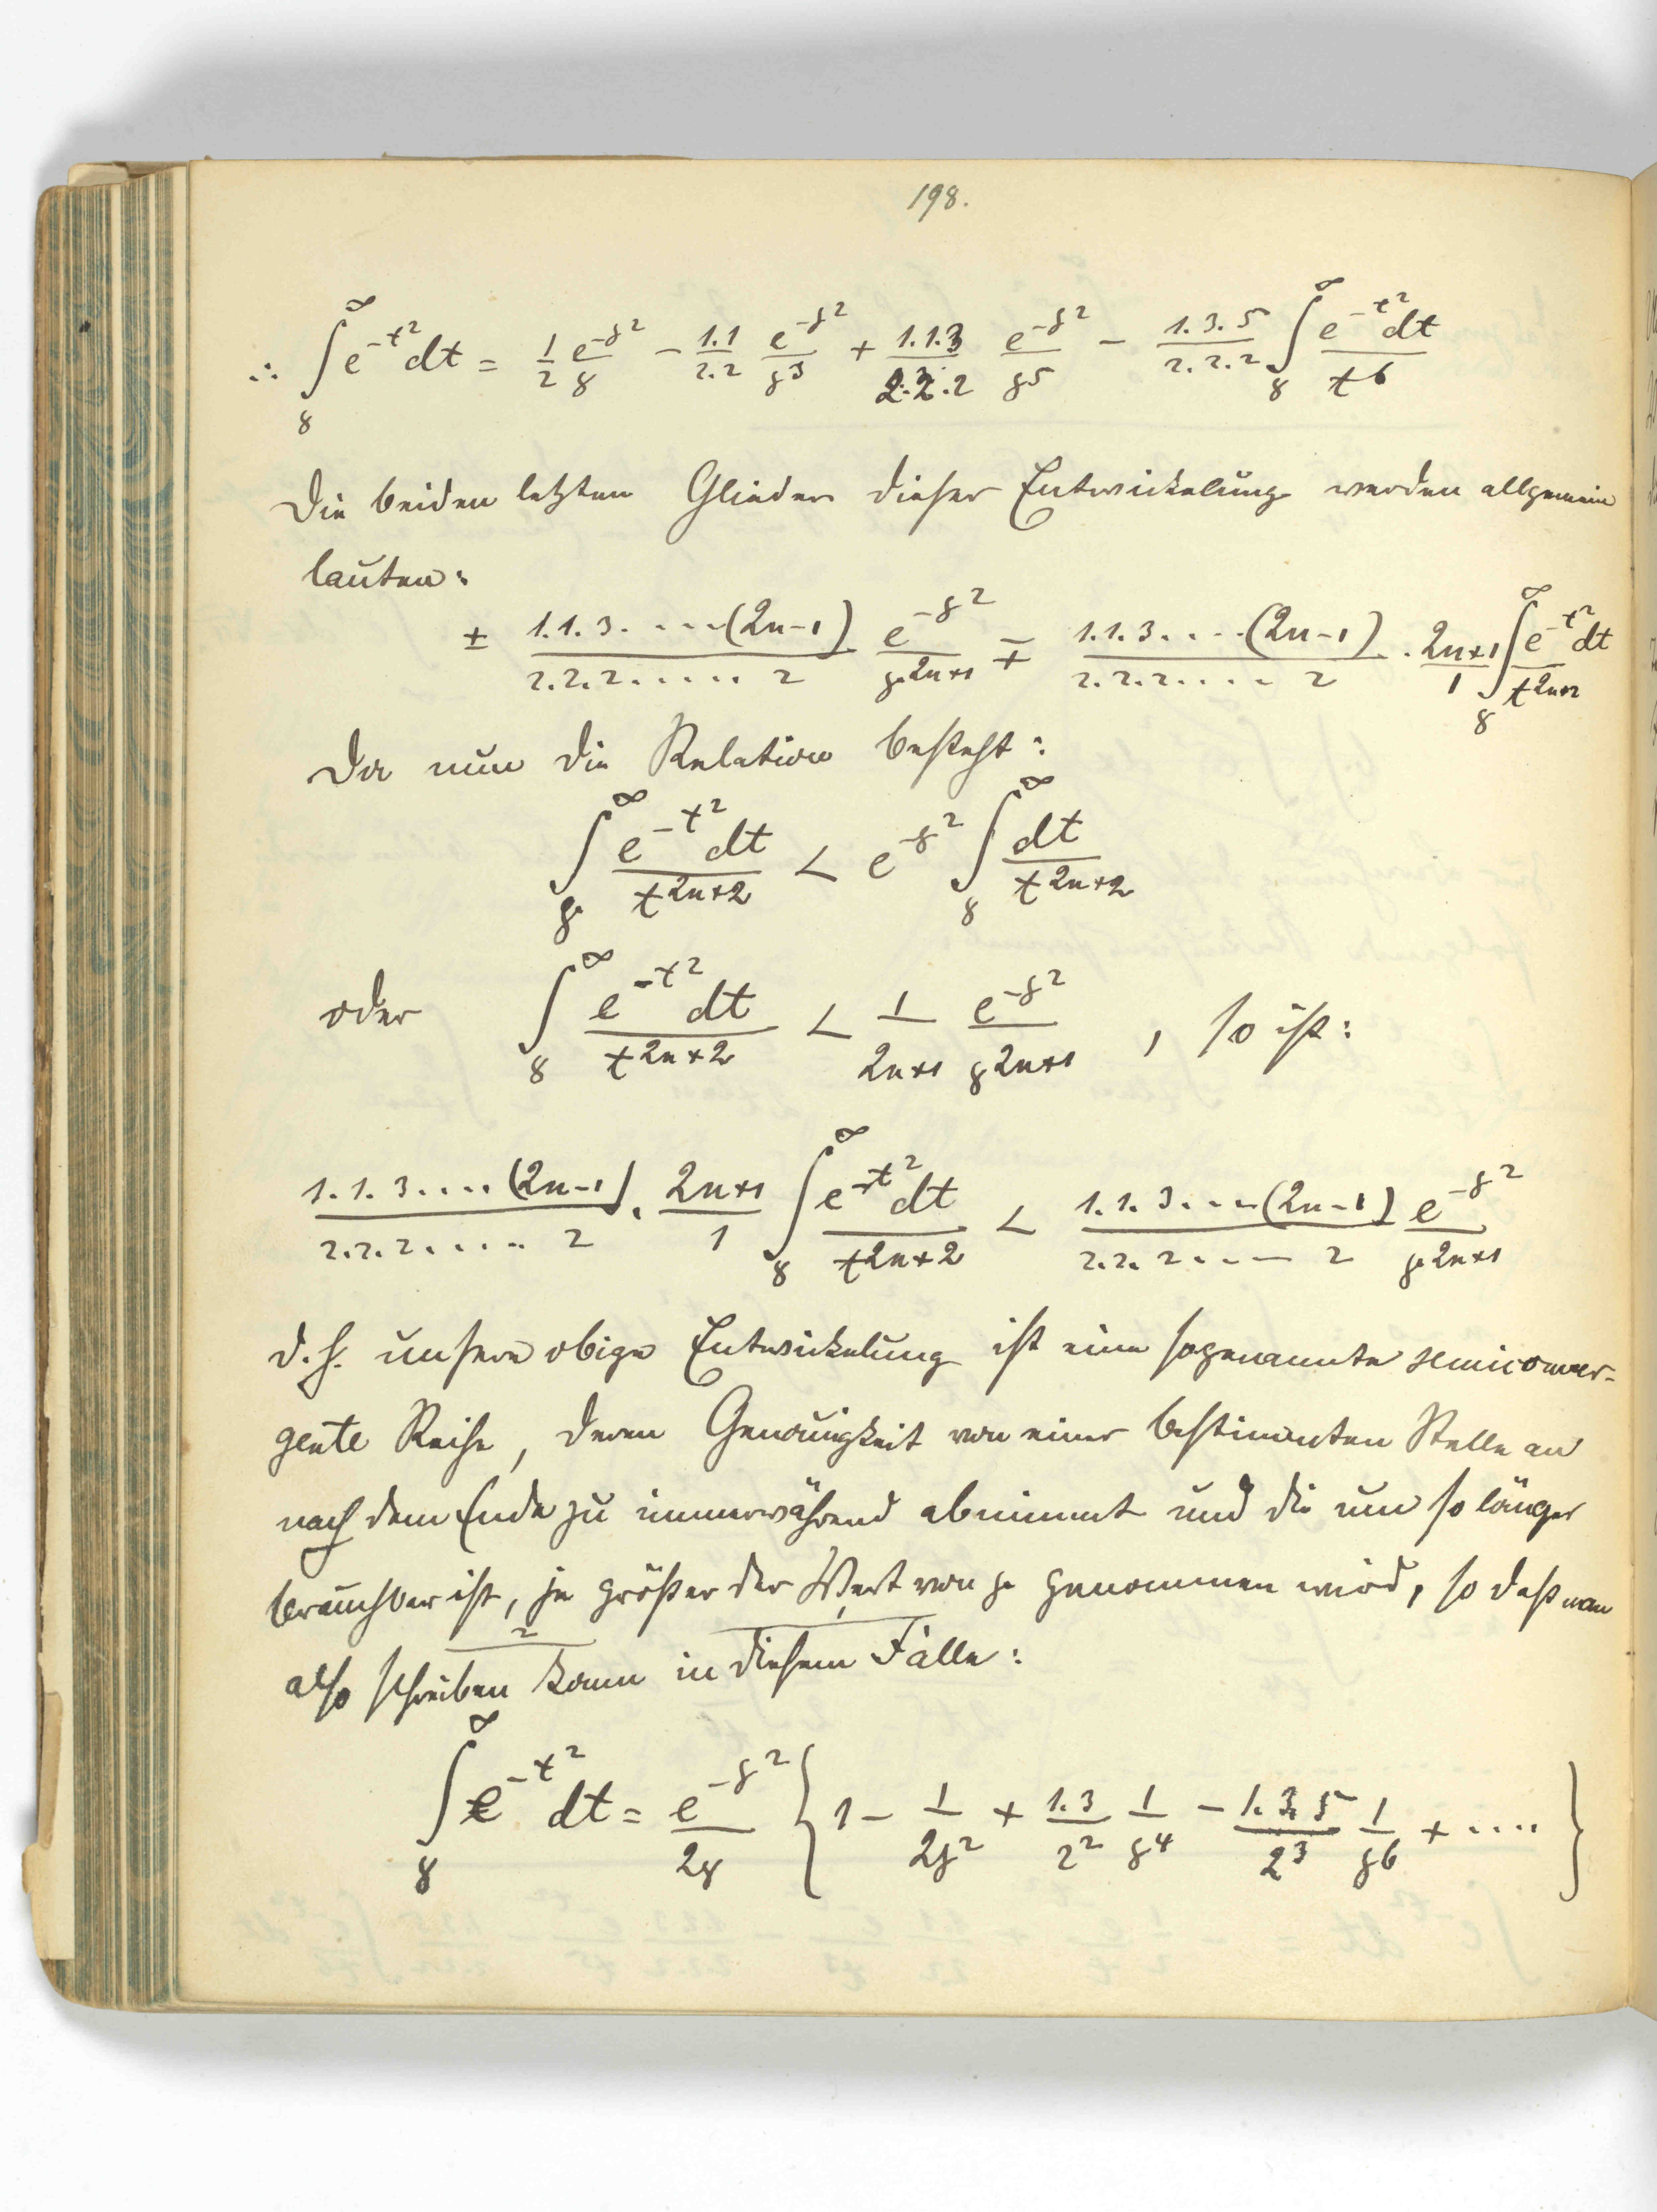 198.
∴ ∫_γ^∞ e^{-t²} dt = 1/2 e^{-γ²}/γ - 1.1/2.2 e^{-γ²}/γ³ + 1.1.3/2.2.2 e^{-γ²}/γ⁵ - 1.3.5/2.2.2 ∫_γ^∞ e^{-t²}dt/t⁶
Die beiden letzten Glieder dieser Entwickelung werden allgemein
lauten:
± 1.1.3. ....(2n-1)/2.2.2...... 2 e^{-γ²}/γ^{2n+1} ∓ 1.1.3....(2n-1)/2.2.2..... 2 . 2n+1/1 ∫_γ^∞ e^{-t²}dt/t^{2n+2}
Da nun die Relation besteht:
∫_γ^∞ e^{-t²}dt/t^{2n+2} < e^{-γ²} ∫_γ^∞ dt/t^{2n+2}
oder ∫_γ^∞ e^{-t²}dt/t^{2n+2} < 1/2n+1 e^{-γ²}/γ^{2n+1} , so ist:
1.1.3....(2n-1)/2.2.2..... 2 . 2n+1/1 ∫_γ^∞ e^{-t²}dt/t^{2n+2} < 1.1.3....(2n-1)/2.2.2.... 2 e^{-γ²}/γ^{2n+1}
d.h. unsere obige Entwickelung ist eine sogenannte semiconver-
gente Reihe, deren Genauigkeit von einer bestimmten Stelle an
nach dem Ende zu immerwährend abnimmt und die um so länger
brauchbar ist, je größer der Wert von γ genommen wird, so daß man
also schreiben kann in diesem Falle:
∫_γ^∞ e^{-t²} dt = e^{-γ²}/2γ {1 - 1/2γ² + 1.3/2² 1/γ⁴ - 1.3.5/2³ 1/γ⁶ + ....}